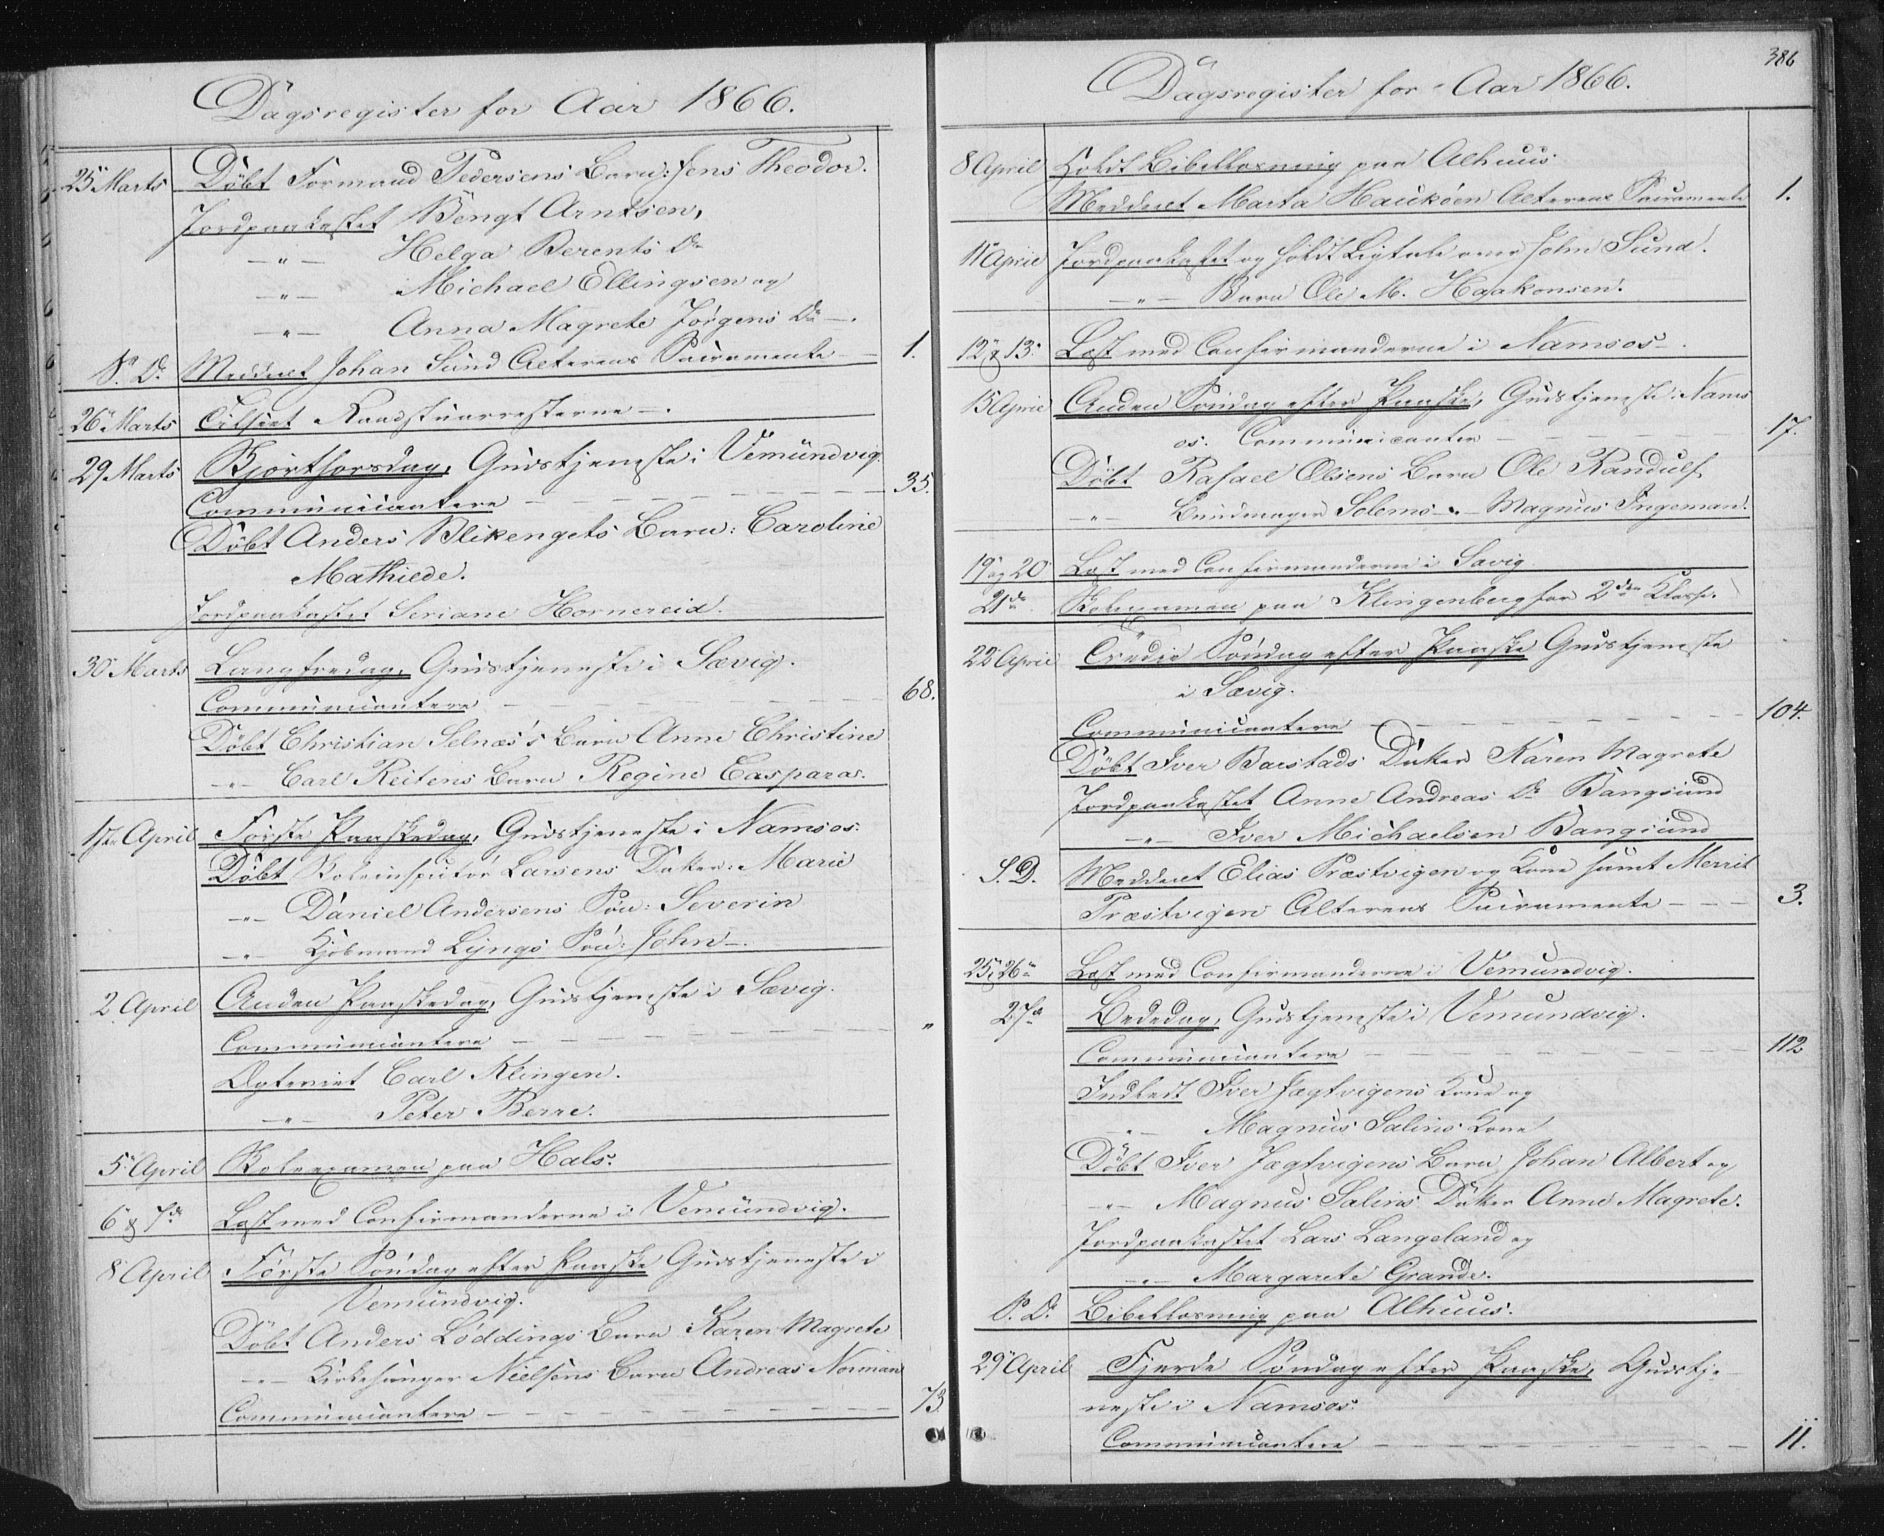 Dagsregister for Aar 1866.
25 Marts Döbt Formand Pedersens Barn: Jens Theodor.
Jordpaakastet Bengt Arntsen,
—„— Helga Berents Dr
—„— Michael Ellingsen og
—„— Anna Magrete Jörgens Dr —.
S. D. Meddeelt Johan Sund Alterens Sacramente — 1.
26 Marts Tilseet Raadstuarresterne —.
29 Marts Skjærthorsdag, Gudstjeneste i Vemundvig.
Communicantere — — — — 35.
Döbt Anders Blikengets Barn: Caroline
Mathilde.
Jordpaakastet Seriane Hornereid.
30 Marts Langfredag, Gudstjeneste i Sævig.
Communicantere — — — — 68.
Döbt Christian Selnæs's Barn Anne Christine
—„— Carl Reitens Barn Regine Caspara.
1ste April Förste Paaskedag, Gudstjeneste i Namsos.
Döbt Toldinspectör Larsens Datter: Marie
—„— Daniel Andersens Sön: Severin
—„— Kjöbmand Lyngs Sön: John —.
2 April Anden Paaskedag, Gudstjeneste i Sævig.
Communicantere — — — — „
Ægteviet Carl Klingen.
—„— Peter Berre.
5 April Skoleexamen paa Hals.
6 & 7de Læst med Confirmanderne i Vemundvig.
8 April Förste Söndag efter Paaske Gudstjeneste i
Vemundvig.
Döbt Anders Löddings Barn Karen Magrete
—„— Kirkesanger Nielsens Barn Andreas Norman
Communicantere — — — — 73
386
Dagsregister for Aar 1866.
8 April Holdt Bibellæsning paa Alhuus.
Meddeelt Marta Hauköen Alterens Sacramente 1.
11 April Jordpaakastet og holdt Ligtale over John Sund.
—„— Barn Ole M. Haakonsen.
12 & 13 Læst med Confirmanderne i Namsos —.
15 April Anden Söndag efter Paaske, Gudstjeneste i Nams
os. Communicanter — — — — 17.
Döbt Rafael Olsens Barn Ole Randulf
—„— Buntmager Solems —„— Magnus Ingeman.
19 og 20 Læst med Confirmanderne i Sævig
21de Skoleexamen paa Klingenberg for 2den Klasse.
22 April Tredie Söndag efter Paaske Gudstjeneste
i Sævig.
Communicantere — — — — 104.
Döbt Iver Barstads Datter Karen Magrete
Jordpaakastet Anne Andreas Dr Bangsund
—„— Iver Michaelsen Bangsund
S. D. Meddeelt Elias Præstvigen og Kone samt Merrit
Præstvigen Alterens Sacramente — — — 3.
25 & 26 Læst med Confirmanderne i Vemundvig.
27de Bededag, Gudstjeneste i Vemundvig.
Communicantere — — — — 112
Indledt Iver Jægtvigens Kone og
—„— Magnus Salins Kone
Döbt Iver Jægtvigens Barn Johan Albert og
—„— Magnus Salins Datter Anne Magrete.
Jordpaakastet Lars Langeland og
—„— Margarete Grande.
S. D. Bibellæsning paa Alhuus.
29 April Fjerde Söndag efter Paaske, Gudstje-
neste i Namsos.
Communicantere — — — — 11.